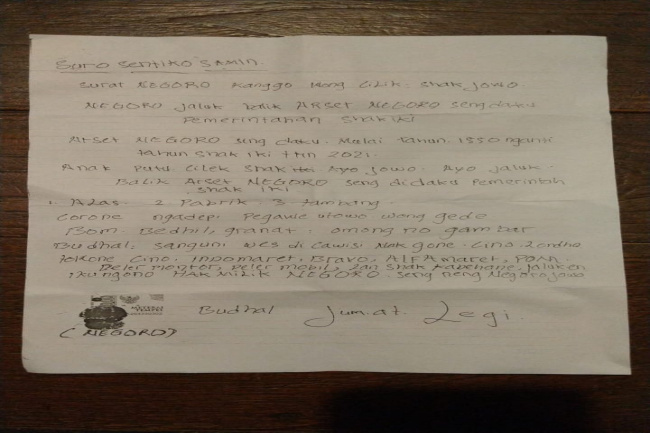 Suro Sentiko SAMIN.
Surat NEGORO Kanggo Wong CiliK. Shak Jowo
NEGORO Jaluk balik ARset NEGORO seng daku
Pemerintahan Shak iki
Arset NEGORO seng daku. Mulai tahun. 1550 nganti
tahun Shak iki thn 2021.
Anak Putu Cilek Shak Ayo Jowo. Ayo Jaluk.
Balik Arset NEGORO seng didaku Pemerintah
Shak iki
1. Alas. 2 Pabrik 3 tambang
Corone ngadepi Pegawe utowo wong gede
Bom. Bedhil, granat. omong no gambar
Budhal. Sanguni wes di Cawisi Gone. Cino. Londho
Tokone Cino. Indomaret, Bravo, ALFAmaret, POM.
Deler montor, Deler mobil, Lan Shak Kabehane, Jaluken
ikungono HAK MILIK NEGORO. Seng neng Negorojowo
Budhal Jum.at. Legi.
(NEGORO)